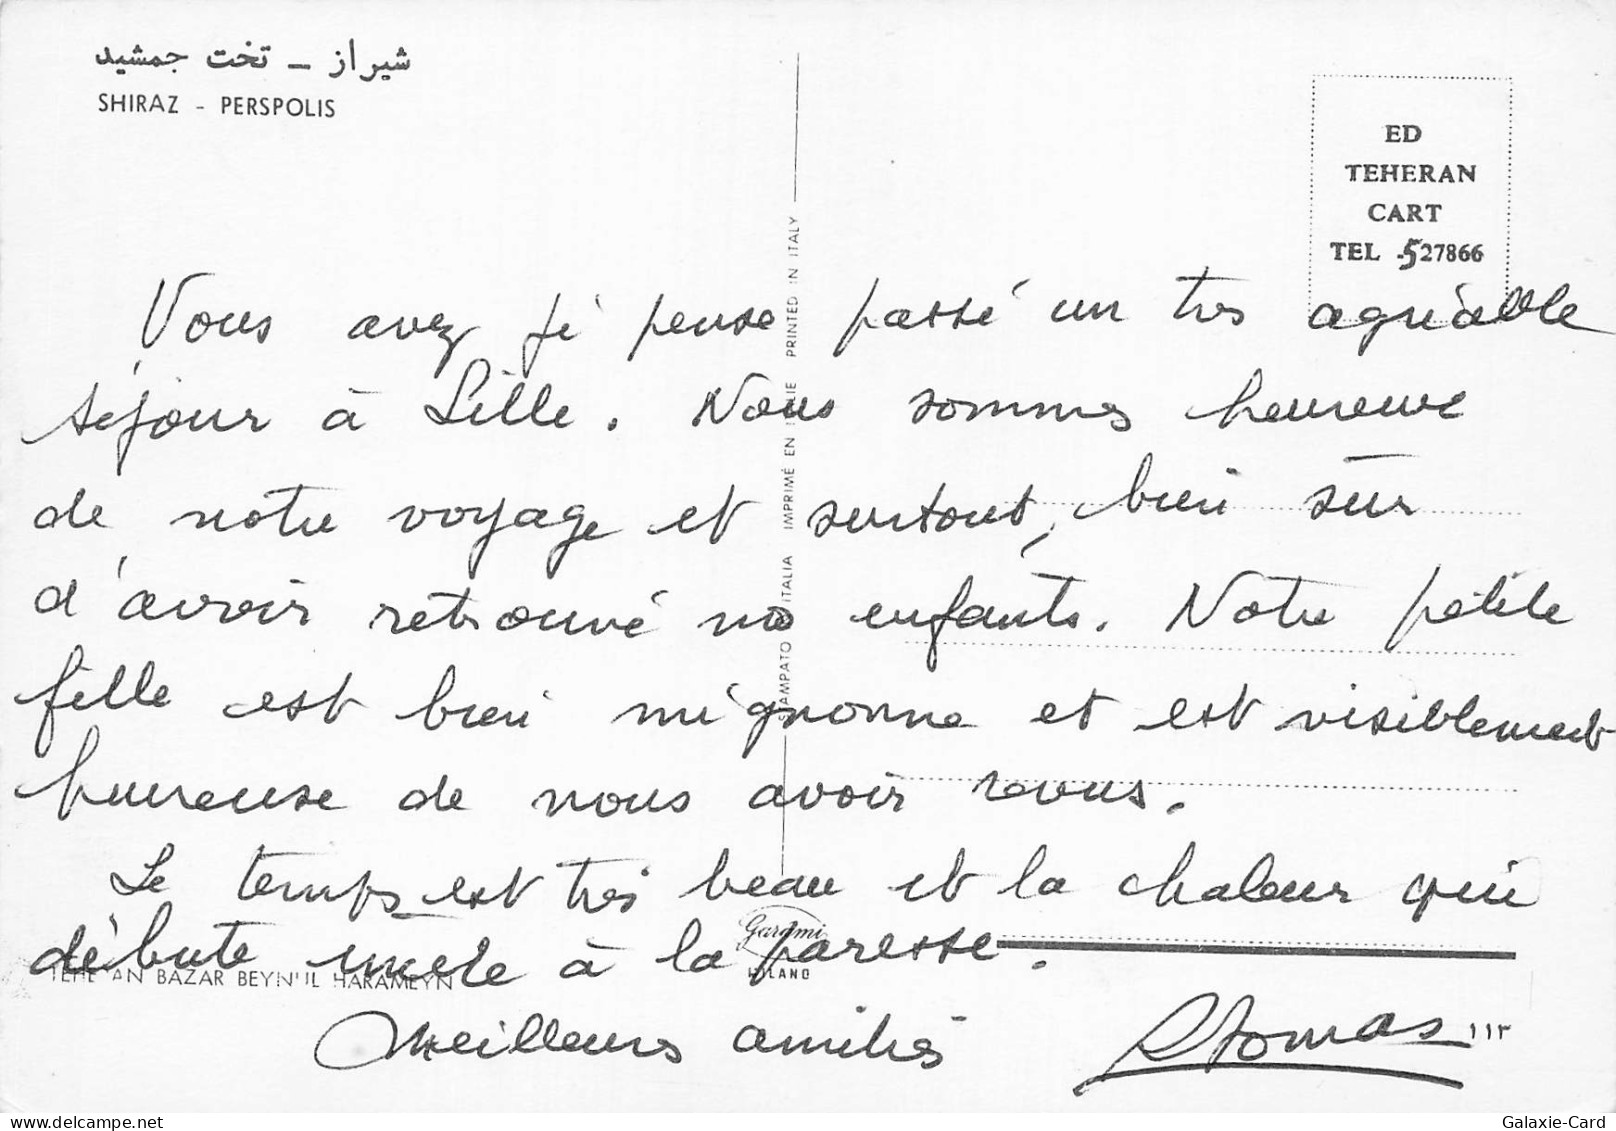 شیراز – تخت جمشید
SHIRAZ - PERSPOLIS
ED
TEHERAN
CART
TEL .527866
Vous avez je pense passé un très agréable
séjour à Lille. Nous sommes heureux
de notre voyage et surtout, bien sûr
d'avoir retrouvé nos enfants. Notre petite
fille est bien mignonne et est visiblement
heureuse de nous avoir revus.
Le temps est très beau et la chaleur qui
débute incite à la paresse.
Meilleures amitiés
STAMPATO ITALIA IMPRIMÉ EN ITALIE PRINTED IN ITALY
Garami
MILANO
TEHERAN BAZAR BEYN'UL HARAMEYN
۱۱۳
Galaxie-Card